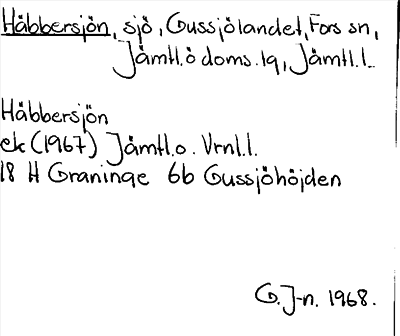 Håbbersjön, sjö, Gussjölandet, Fors sn,
Jämtl.ö doms.lq, Jämtl.l.
Håbbersjön
ek (1967) Jämtl.o. Vrnl.l.
18 H Graninge 6b Gussjöhöjden
G.J-n. 1968.